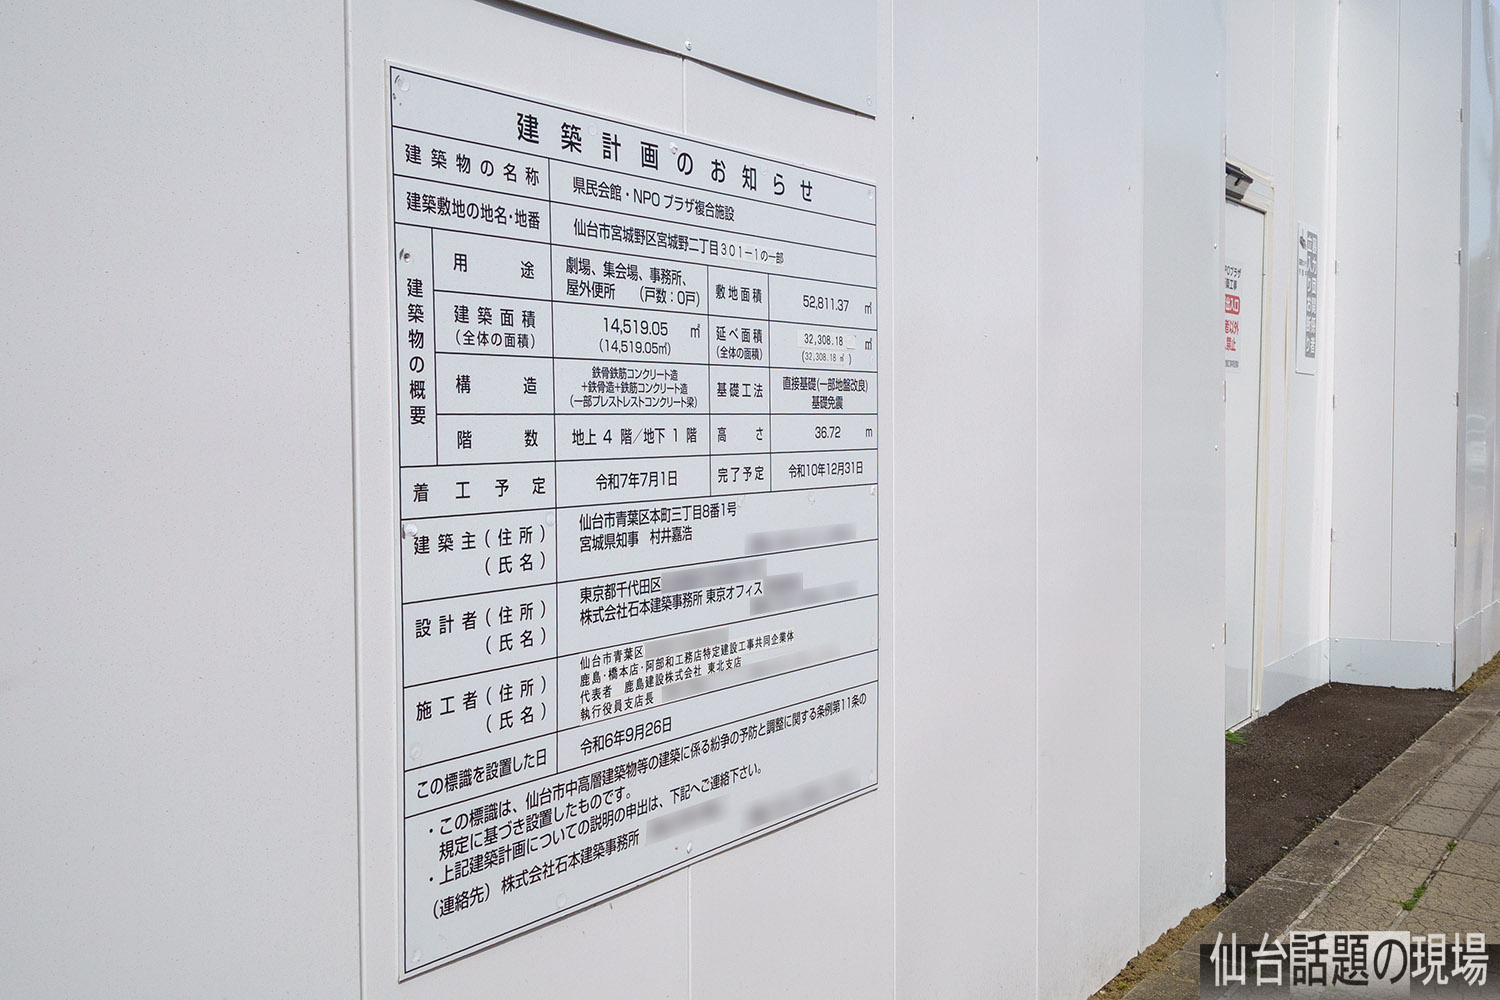 建築計画のお知らせ
建築物の名称 県民会館・NPOプラザ複合施設
建築敷地の地名・地番 仙台市宮城野区宮城野二丁目301－1の一部
建築物の概要
用途 劇場、集会場、事務所、
屋外便所 （戸数：0戸）
敷地面積 52,811.37 ㎡
建築面積 14,519.05 ㎡
(全体の面積) (14,519.05㎡)
延べ面積 32,308.18 ㎡
(全体の面積) (32,308.18 ㎡)
構造 鉄骨鉄筋コンクリート造
+鉄骨造+鉄筋コンクリート造
(一部プレストレストコンクリート梁)
基礎工法 直接基礎(一部地盤改良)
基礎免震
階数 地上 4 階／地下 1 階
高さ 36.72 m
着工予定 令和7年7月1日
完了予定 令和10年12月31日
建築主(住所) 仙台市青葉区本町三丁目8番1号
(氏名) 宮城県知事 村井嘉浩
設計者(住所) 東京都千代田区
(氏名) 株式会社石本建築事務所 東京オフィス
施工者(住所) 仙台市青葉区
(氏名) 鹿島・橋本店・阿部和工務店特定建設工事共同企業体
代表者 鹿島建設株式会社 東北支店
執行役員支店長
この標識を設置した日 令和6年9月26日
・この標識は、仙台市中高層建築物等の建築に係る紛争の予防と調整に関する条例第11条の
規定に基づき設置したものです。
・上記建築計画についての説明の申出は、下記へご連絡下さい。
(連絡先) 株式会社石本建築事務所
仙台話題の現場